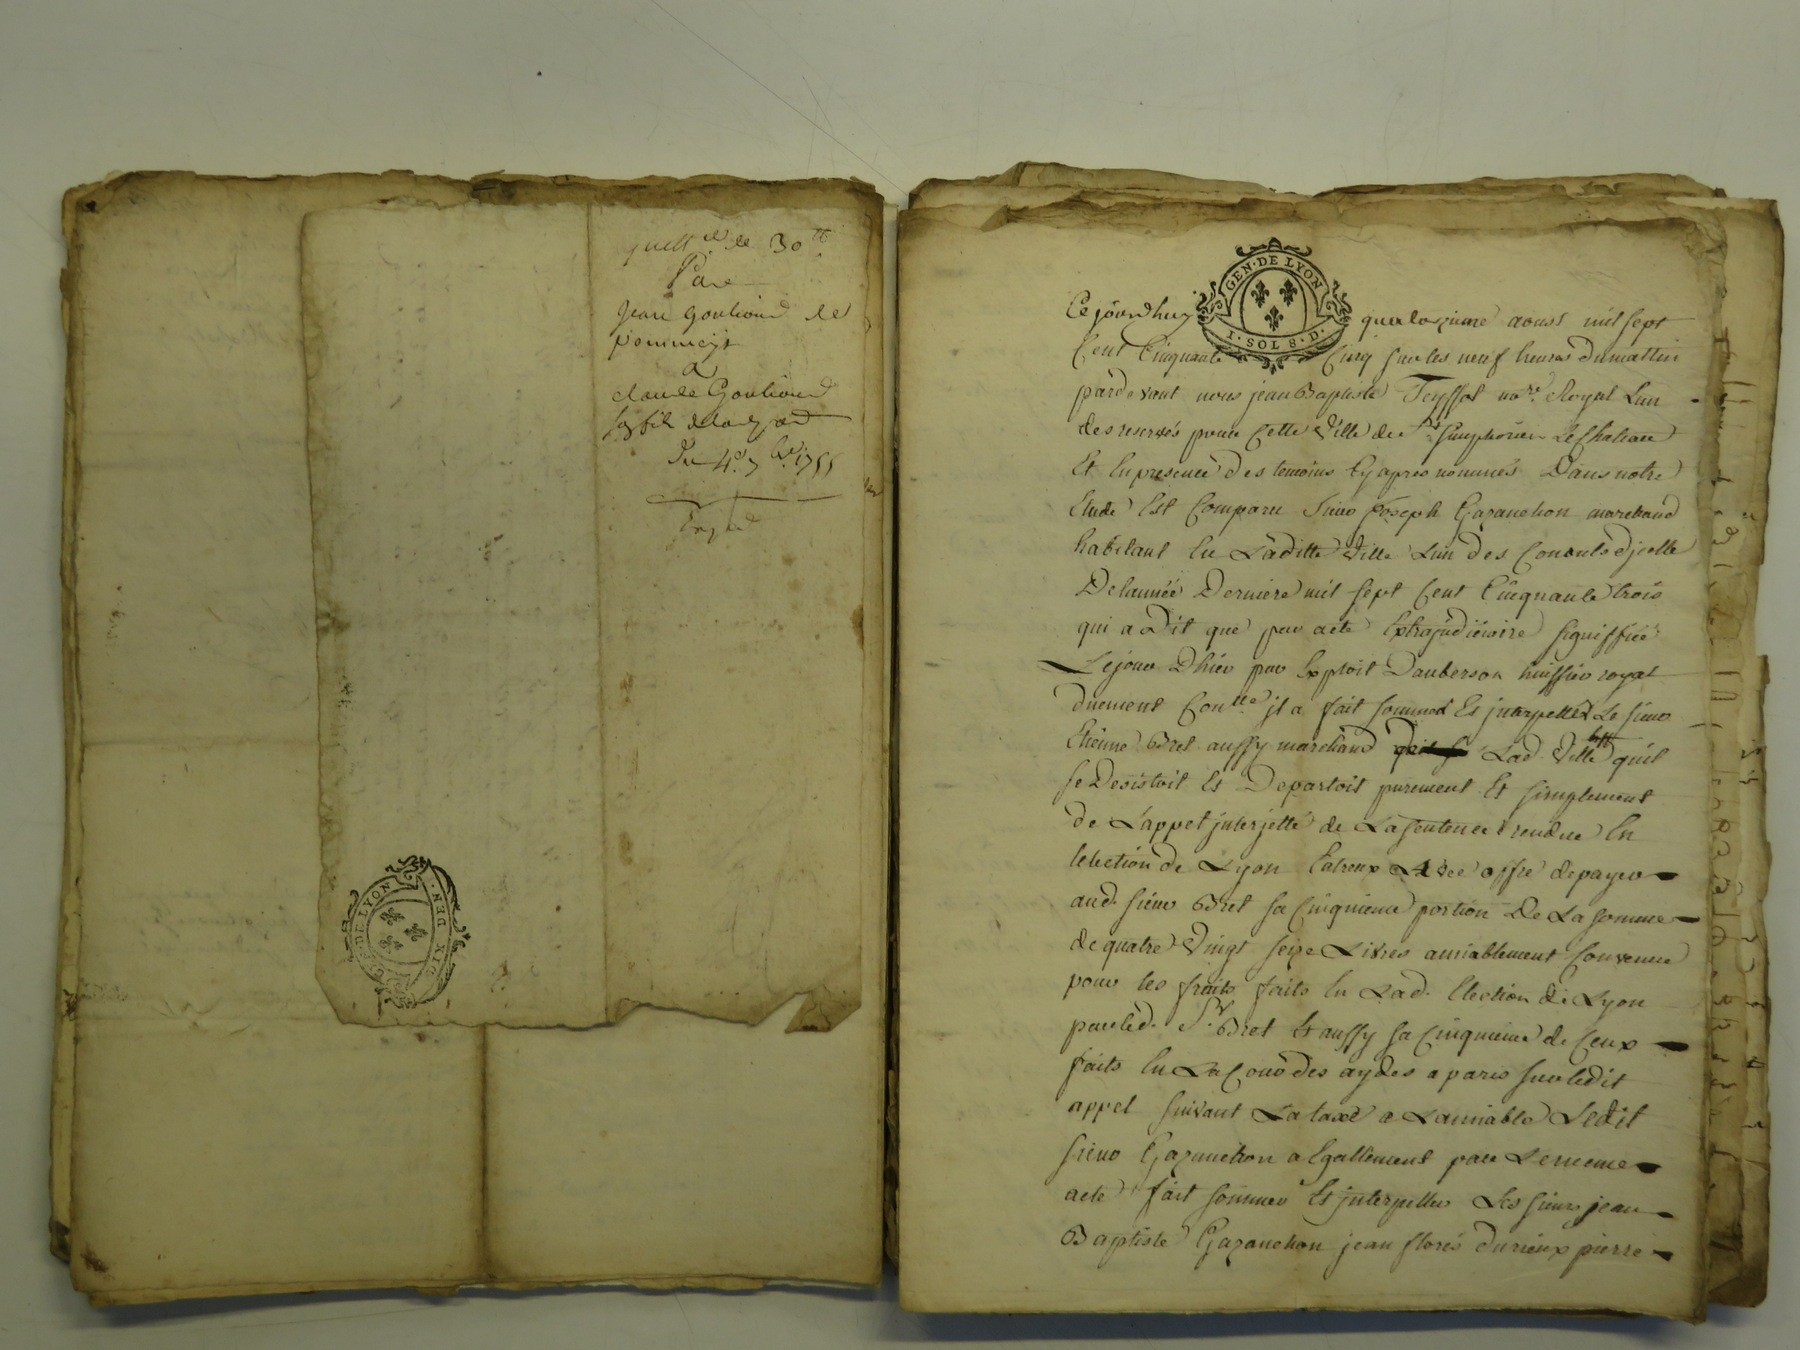 quitt.ce de 30tt
Par
Jean Goutiond de
pommeys
a
claude Goutiond
son fils
Du 4e 7bre 1755
GEN·DE LYON
DEN. SIX
GEN·DE LYON
1·SOL 8·D·
Cejourdhuy quatorzieme aoust mil sept
Cent Cinquante Cinq sur les neuf heures du mattin
pardevant nous jean Baptiste Teyssot nore. Royal Lun
des reservés pour Cette Ville de St simphorien Le Chateau
Et En presence des temoins Cy apres nommés Dans notre
Etude Est Comparu Sieur Joseph Gazanchon marchand
habitant En Laditte Ville Lun des Consuls djcelle
De lannée Derniere mil sept Cent Cinquante trois
qui a Dit que par acte Extrajudiciaire signiffié
Le jour Dhier par Exploit Dauberson huissier royal
duement Contlle jl a fait sommer Et jnterpeller Le sieur
Etienne Bret aussy marchand Lad. Ville quil
se Desistoit Et Departoit purement Et simplement
de Lappel jnterjetté de La sentence rendue En
lelection de Lyon Entreux avec offre de payer
aud. sieur Bret sa Cinquieme portion De La somme
de quatre Vingt seize Livres amiablement Convenue
pour les fraits faits En Lad. Election de Lyon
par led. Sr. Bret Et aussy sa Cinquieme de Ceux
faits En La Cour des aydes a paris sur ledit
appel suivant La taxe a Lamiable Ledit
sieur Gazanchon a Egallement par Le meme
acte fait sommer Et jnterpeller Les sieurs jean
Baptiste Gazanchon jean florés durieux pierre